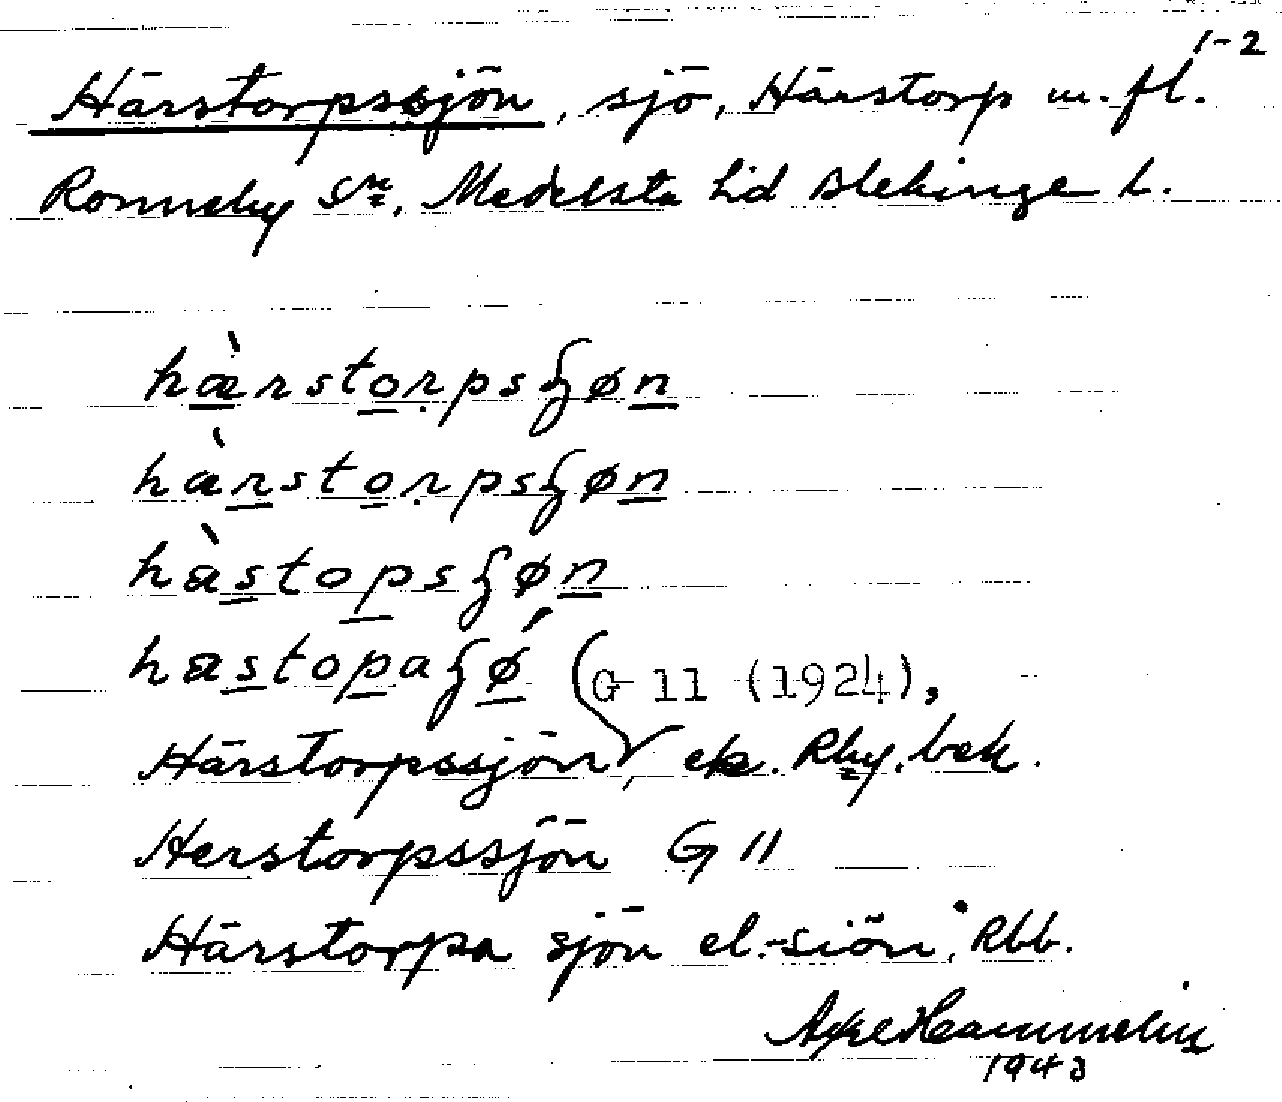 1-2
Härstorpssjön, sjö, Härstorp m.fl.
Ronneby sn, Medelsta hd Blekinge l.
hæ̀rstorpsʃøn
hàrstorpsʃøn
hàstopsʃøn
hastopaʃǿ (G 11 (1924),
Härstorpssjön, ek. Rby. bek.
Herstorpssjön G 11
Härstorpa sjön el. -siön, Rbb.
Axel
1943